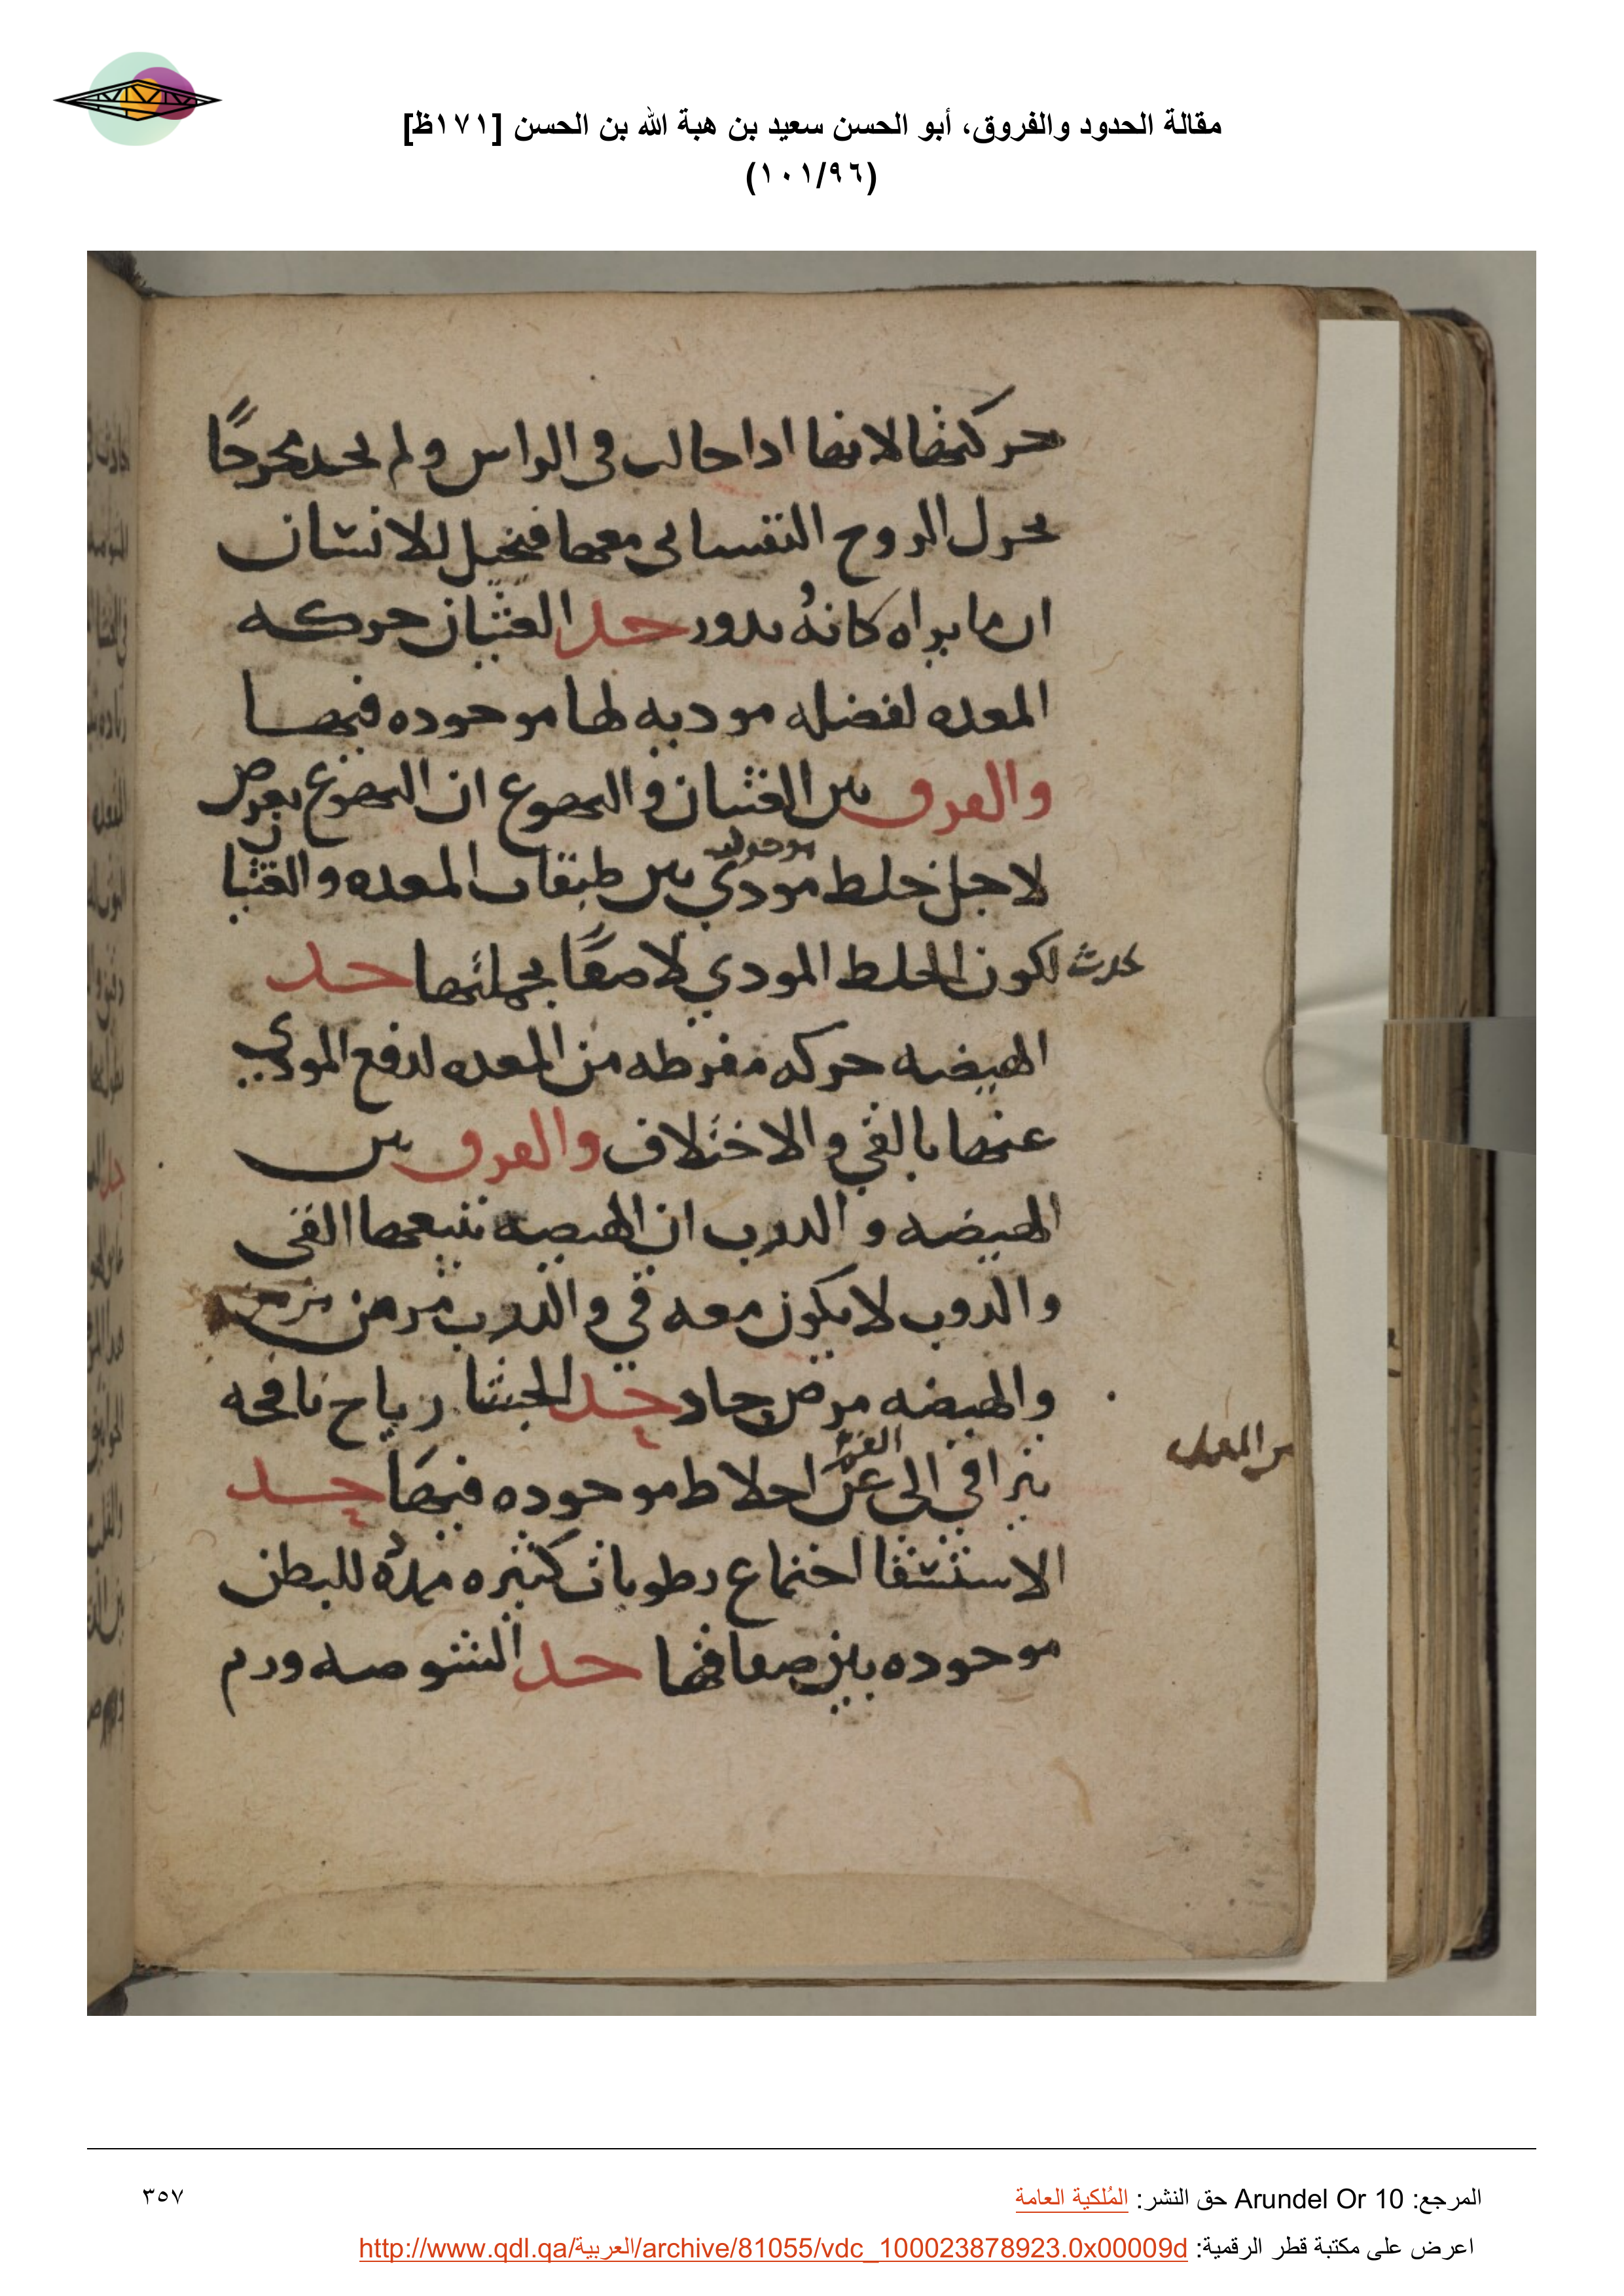 مقالة الحدود والفروق، أبو الحسن سعيد بن هبة الله بن الحسن [١٧١ظ]
(١٠١/٩٦)
حركتها لانها ادا حالت فى الراس ولم تجد مخرجًا
تحرك الروح النفسانى معها فتخيل للانسان
ان ما يراه كانهُ يدور حد الغثيان حركه
المعده لفضله موديه لها موجوده فيها
والفرق بين الغثيان والتهوع ان التهوع يعرض
لاجل خلط مودي موجود بين طبقات المعده والغثيا
يحدث لكون الخلط المودي لاصقًا بجملتها حد
الهيضه حركه مفرطه من المعده لدفع المودي
عنها بالقي والاختلاف والفرق بين
الهيضه والدرب ان الهيضه يتبعها القى
والدرب لا يكون معه قي والدرب مرض مزمن
والهيضه مرض حاد حد الجشا رياح نافخه
تتراقي الى الفم عن اخلاط موجوده فيها حد
من المعده
الاستسقا اجتماع رطوبات كثيره ممدهُ للبطن
موجوده بين صفاقها حد الشوصه ورم
المرجع: Arundel Or 10 حق النشر: المُلكية العامة
٣٥٧
اعرض على مكتبة قطر الرقمية: http://www.qdl.qa/العربية/archive/81055/vdc_100023878923.0x00009d